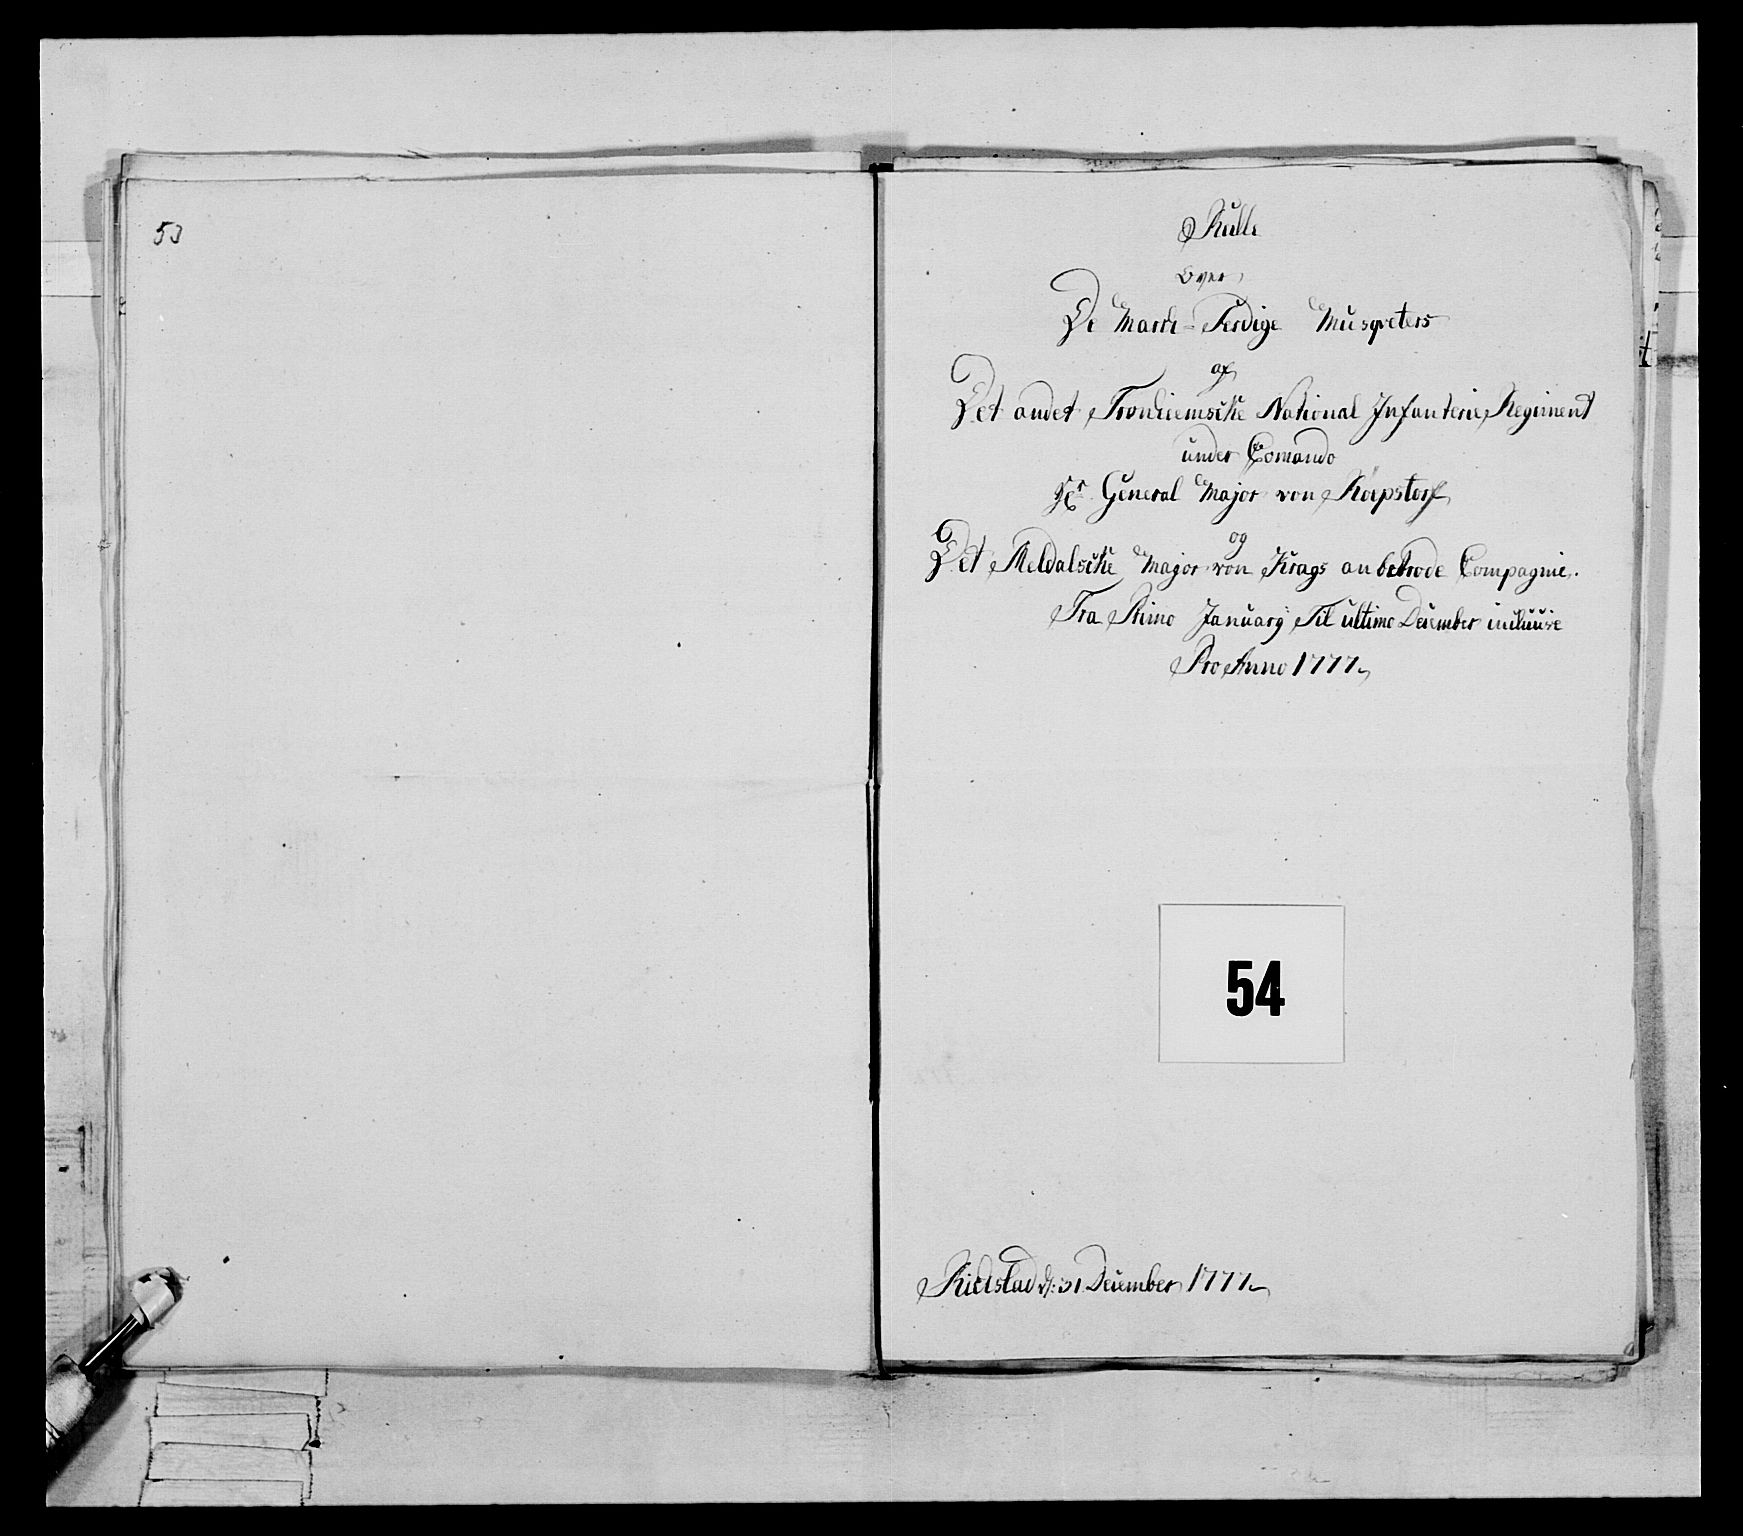 53
Rulle
over
De March-Ferdige Musqveters
af
Det andet Tronhiemsche National Infanterie Regiment
under Comando
Hr General Major von Röepstorf
og
Det Meldalsche Major von Krags anbetrode Compagnie.
Fra Primo January Til ultimo December inclusive
Pro Anno 1777
54
Rielstad d: 31 December 1777